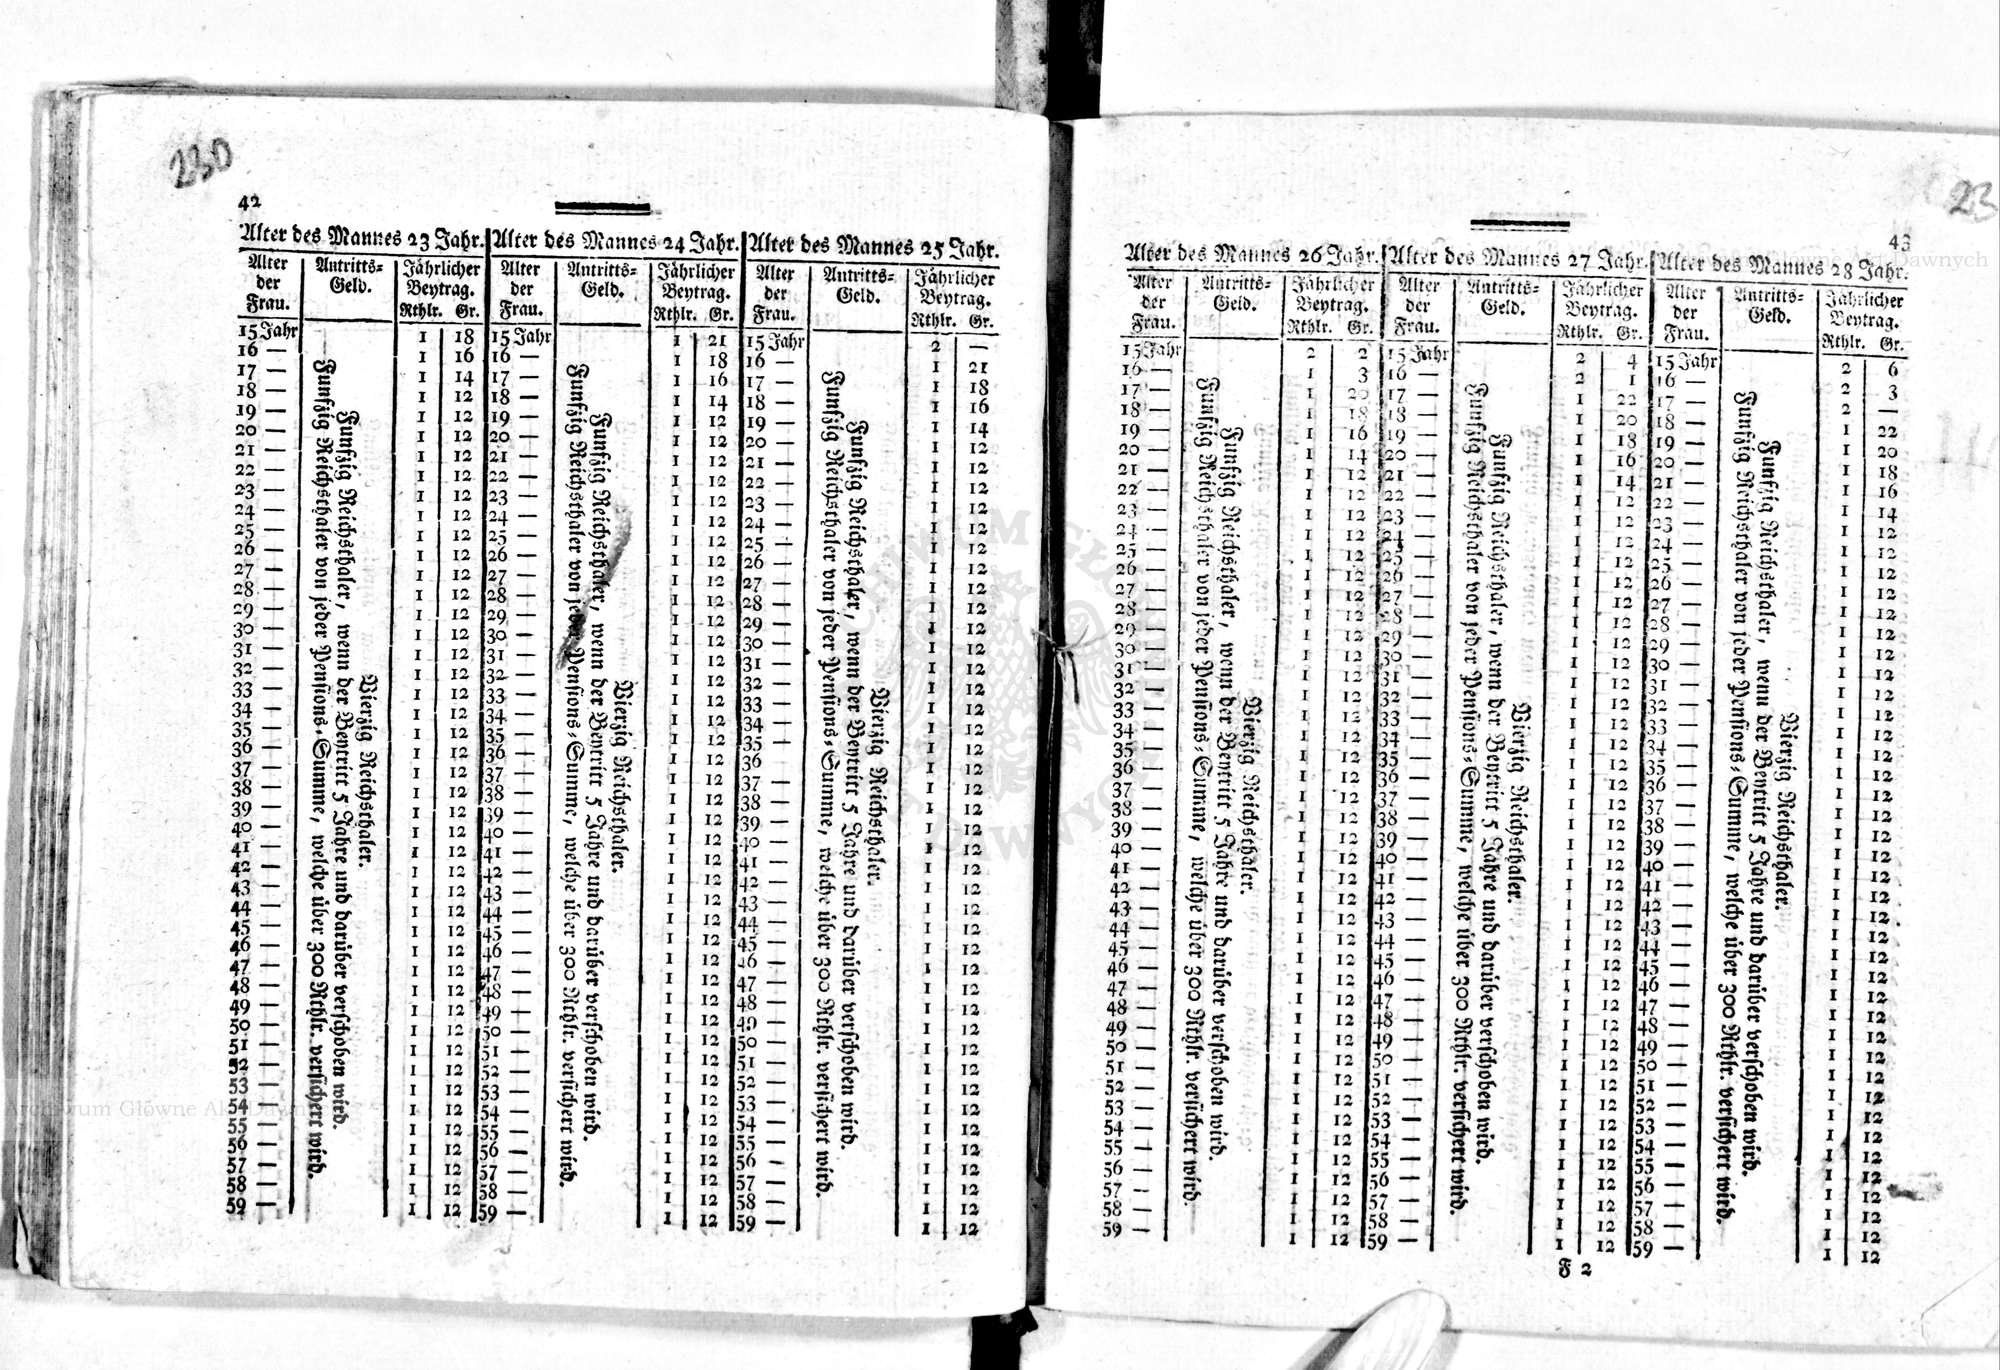 230
42
Alter des Mannes 23 Jahr. Alter des Mannes 24 Jahr. Alter des Mannes 25 Jahr.
Alter der Frau. Antritts-Geld. Jährlicher Beytrag. Rthlr. Gr. Alter der Frau. Antritts-Geld. Jährlicher Beytrag. Rthlr. Gr. Alter der Frau. Antritts-Geld. Jährlicher Beytrag. Rthlr. Gr.
15 Jahr 1 18 15 Jahr 1 21 15 Jahr 2 —
16 — 1 16 16 — 1 18 16 — 1 21
17 — 1 14 17 — 1 16 17 — 1 18
18 — 1 12 18 — 1 14 18 — 1 16
19 — 1 12 19 — 1 12 19 — 1 14
20 — 1 12 20 — 1 12 20 — 1 12
21 — 1 12 21 — 1 12 21 — 1 12
22 — 1 12 22 — 1 12 22 — 1 12
23 — 1 12 23 — 1 12 23 — 1 12
24 — 1 12 24 — 1 12 24 — 1 12
25 — 1 12 25 — 1 12 25 — 1 12
26 — 1 12 26 — 1 12 26 — 1 12
27 — 1 12 27 — 1 12 27 — 1 12
28 — 1 12 28 — 1 12 28 — 1 12
29 — 1 12 29 — 1 12 29 — 1 12
30 — 1 12 30 — 1 12 30 — 1 12
31 — 1 12 31 — 1 12 31 — 1 12
32 — 1 12 32 — 1 12 32 — 1 12
33 — 1 12 33 — 1 12 33 — 1 12
34 — 1 12 34 — 1 12 34 — 1 12
35 — 1 12 35 — 1 12 35 — 1 12
36 — 1 12 36 — 1 12 36 — 1 12
37 — 1 12 37 — 1 12 37 — 1 12
38 — 1 12 38 — 1 12 38 — 1 12
39 — 1 12 39 — 1 12 39 — 1 12
40 — 1 12 40 — 1 12 40 — 1 12
41 — 1 12 41 — 1 12 41 — 1 12
42 — 1 12 42 — 1 12 42 — 1 12
43 — 1 12 43 — 1 12 43 — 1 12
44 — 1 12 44 — 1 12 44 — 1 12
45 — 1 12 45 — 1 12 45 — 1 12
46 — 1 12 46 — 1 12 46 — 1 12
47 — 1 12 47 — 1 12 47 — 1 12
48 — 1 12 48 — 1 12 48 — 1 12
49 — 1 12 49 — 1 12 49 — 1 12
50 — 1 12 50 — 1 12 50 — 1 12
51 — 1 12 51 — 1 12 51 — 1 12
52 — 1 12 52 — 1 12 52 — 1 12
53 — 1 12 53 — 1 12 53 — 1 12
54 — 1 12 54 — 1 12 54 — 1 12
55 — 1 12 55 — 1 12 55 — 1 12
56 — 1 12 56 — 1 12 56 — 1 12
57 — 1 12 57 — 1 12 57 — 1 12
58 — 1 12 58 — 1 12 58 — 1 12
59 — 1 12 59 — 1 12 59 — 1 12
Vierzig Reichsthaler.
Funfzig Reichsthaler, wenn der Beytritt 5 Jahre und darüber verschoben wird.
Funfzig Reichsthaler von jeder Pensions-Summe, welche über 300 Rthlr. versichert wird.
Vierzig Reichsthaler.
Funfzig Reichsthaler, wenn der Beytritt 5 Jahre und darüber verschoben wird.
Funfzig Reichsthaler von jeder Pensions-Summe, welche über 300 Rthlr. versichert wird.
Vierzig Reichsthaler.
Funfzig Reichsthaler, wenn der Beytritt 5 Jahre und darüber verschoben wird.
Funfzig Reichsthaler von jeder Pensions-Summe, welche über 300 Rthlr. versichert wird.
Archiwum Główne Akt Dawnych
23
43
Archiwum Główne Akt Dawnych
Alter des Mannes 26 Jahr. Alter des Mannes 27 Jahr. Alter des Mannes 28 Jahr.
Alter der Frau. Antritts-Geld. Jährlicher Beytrag. Rthlr. Gr. Alter der Frau. Antritts-Geld. Jährlicher Beytrag. Rthlr. Gr. Alter der Frau. Antritts-Geld. Jährlicher Beytrag. Rthlr. Gr.
15 Jahr 2 2 15 Jahr 2 4 15 Jahr 2 6
16 — 1 3 16 — 2 1 16 — 2 3
17 — 1 20 17 — 1 22 17 — 2 —
18 — 1 18 18 — 1 20 18 — 1 22
19 — 1 16 19 — 1 18 19 — 1 20
20 — 1 14 20 — 1 16 20 — 1 18
21 — 1 12 21 — 1 14 21 — 1 16
22 — 1 12 22 — 1 12 22 — 1 14
23 — 1 12 23 — 1 12 23 — 1 12
24 — 1 12 24 — 1 12 24 — 1 12
25 — 1 12 25 — 1 12 25 — 1 12
26 — 1 12 26 — 1 12 26 — 1 12
27 — 1 12 27 — 1 12 27 — 1 12
28 — 1 12 28 — 1 12 28 — 1 12
29 — 1 12 29 — 1 12 29 — 1 12
30 — 1 12 30 — 1 12 30 — 1 12
31 — 1 12 31 — 1 12 31 — 1 12
32 — 1 12 32 — 1 12 32 — 1 12
33 — 1 12 33 — 1 12 33 — 1 12
34 — 1 12 34 — 1 12 34 — 1 12
35 — 1 12 35 — 1 12 35 — 1 12
36 — 1 12 36 — 1 12 36 — 1 12
37 — 1 12 37 — 1 12 37 — 1 12
38 — 1 12 38 — 1 12 38 — 1 12
39 — 1 12 39 — 1 12 39 — 1 12
40 — 1 12 40 — 1 12 40 — 1 12
41 — 1 12 41 — 1 12 41 — 1 12
42 — 1 12 42 — 1 12 42 — 1 12
43 — 1 12 43 — 1 12 43 — 1 12
44 — 1 12 44 — 1 12 44 — 1 12
45 — 1 12 45 — 1 12 45 — 1 12
46 — 1 12 46 — 1 12 46 — 1 12
47 — 1 12 47 — 1 12 47 — 1 12
48 — 1 12 48 — 1 12 48 — 1 12
49 — 1 12 49 — 1 12 49 — 1 12
50 — 1 12 50 — 1 12 50 — 1 12
51 — 1 12 51 — 1 12 51 — 1 12
52 — 1 12 52 — 1 12 52 — 1 12
53 — 1 12 53 — 1 12 53 — 1 12
54 — 1 12 54 — 1 12 54 — 1 12
55 — 1 12 55 — 1 12 55 — 1 12
56 — 1 12 56 — 1 12 56 — 1 12
57 — 1 12 57 — 1 12 57 — 1 12
58 — 1 12 58 — 1 12 58 — 1 12
59 — 1 12 59 — 1 12 59 — 1 12
Vierzig Reichsthaler.
Funfzig Reichsthaler, wenn der Beytritt 5 Jahre und darüber verschoben wird.
Funfzig Reichsthaler von jeder Pensions-Summe, welche über 300 Rthlr. versichert wird.
Vierzig Reichsthaler.
Funfzig Reichsthaler, wenn der Beytritt 5 Jahre und darüber verschoben wird.
Funfzig Reichsthaler von jeder Pensions-Summe, welche über 300 Rthlr. versichert wird.
Vierzig Reichsthaler.
Funfzig Reichsthaler, wenn der Beytritt 5 Jahre und darüber verschoben wird.
Funfzig Reichsthaler von jeder Pensions-Summe, welche über 300 Rthlr. versichert wird.
F 2